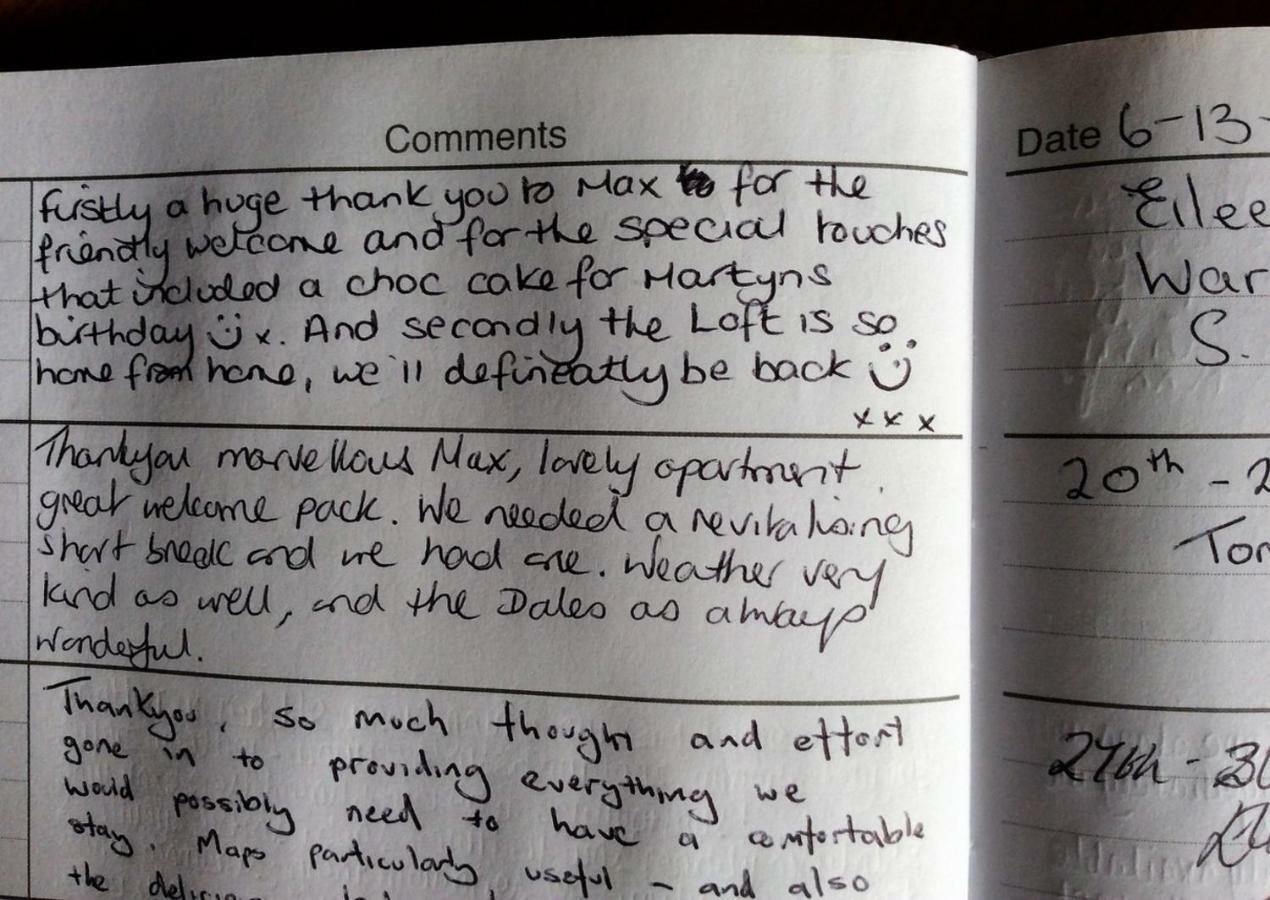 Comments
firstly a huge thank you to Max for the
friendly welcome and for the special touches
that included a choc cake for Martyns
birthday x. And secondly the Loft is so
home from home, we'll defineatly be back
x x x
Thankyou marvellous Max, lovely apartment.
great welcome pack. We needed a revitalising
short break and we had one. Weather very
kind as well, and the Dales as always
wonderful.
Thankyou, so much thought and effort
gone in to providing everything we
would possibly need to have a comfortable
stay. Maps particularly useful - and also
the
Date 6-13-
Eilee
War
S.
20th - 2
Tor
27th - 30